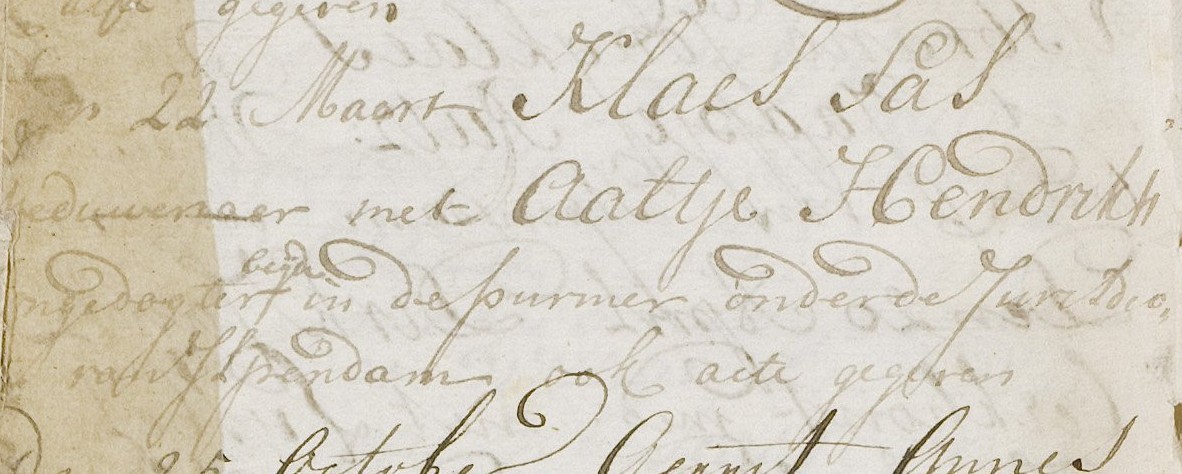 acte gegeven
den 22 Maart Klaes Sas
weduwenaer met Aaltje Hendriks
Jongedogter beijde in de purmer onder de Jurisdic,
van Ilpendam ook acte gegeven
Den 25 October Gerrit Annes